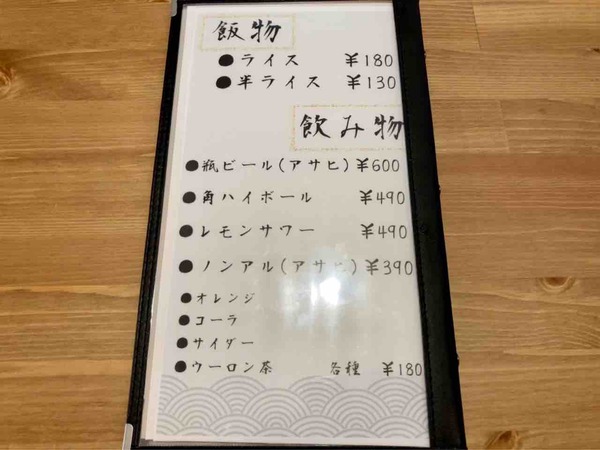 飯物
●ライス ¥180
●半ライス ¥130
飲み物
●瓶ビール(アサヒ) ¥600
●角ハイボール ¥490
●レモンサワー ¥490
●ノンアル(アサヒ) ¥390
●オレンジ
●コーラ
●サイダー
●ウーロン茶 各種 ¥180